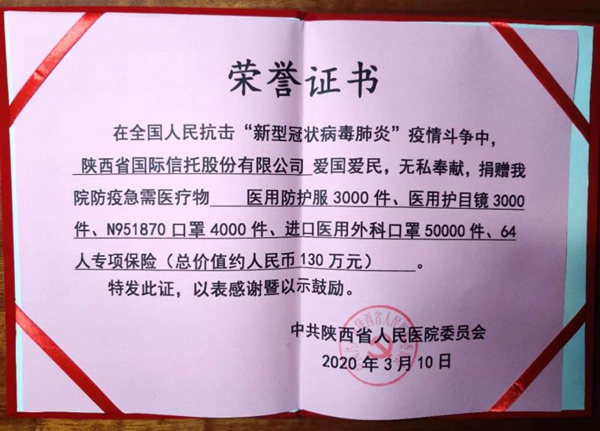 荣誉证书
在全国人民抗击“新型冠状病毒肺炎”疫情斗争中,
陕西省国际信托股份有限公司 爱国爱民，无私奉献，捐赠我
院防疫急需医疗物 医用防护服3000件、医用护目镜3000
件、N951870口罩4000件、进口医用外科口罩50000件、64
人专项保险（总价值约人民币130万元） 。
特发此证，以表感谢暨以示鼓励。
中共陕西省人民医院委员会
2020年3月10日